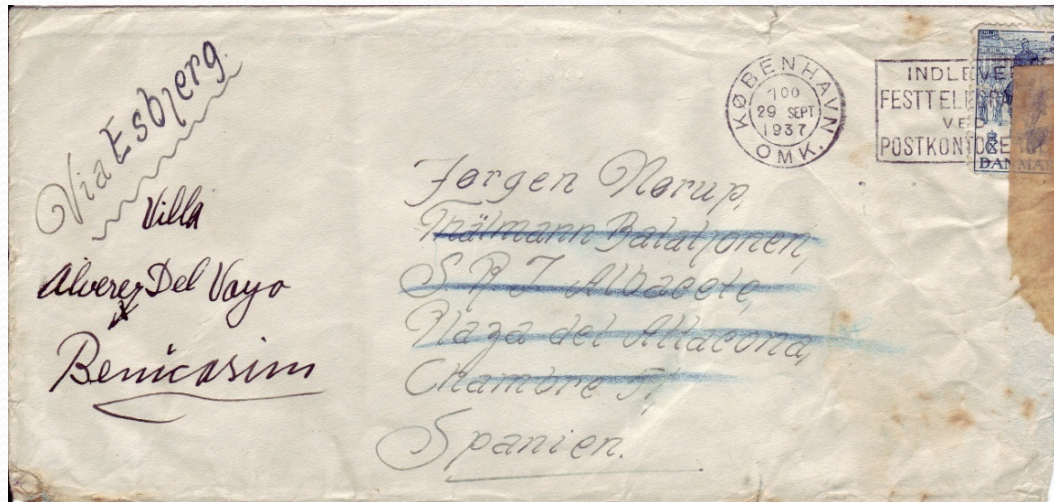 Via Esbjerg.
Villa
Alverez Del Vayo
Benicasim
KØBENHAVN
700
29 SEPT
1937
OMK.
INDLEVE
FESTTELEGRA
VED
POSTKONTORE
DANMA
Jørgen Norup,
Thälmann Bataljonen,
S.R.I Albacete,
Plaza del Altacona,
Chambre 51,
Spanien.